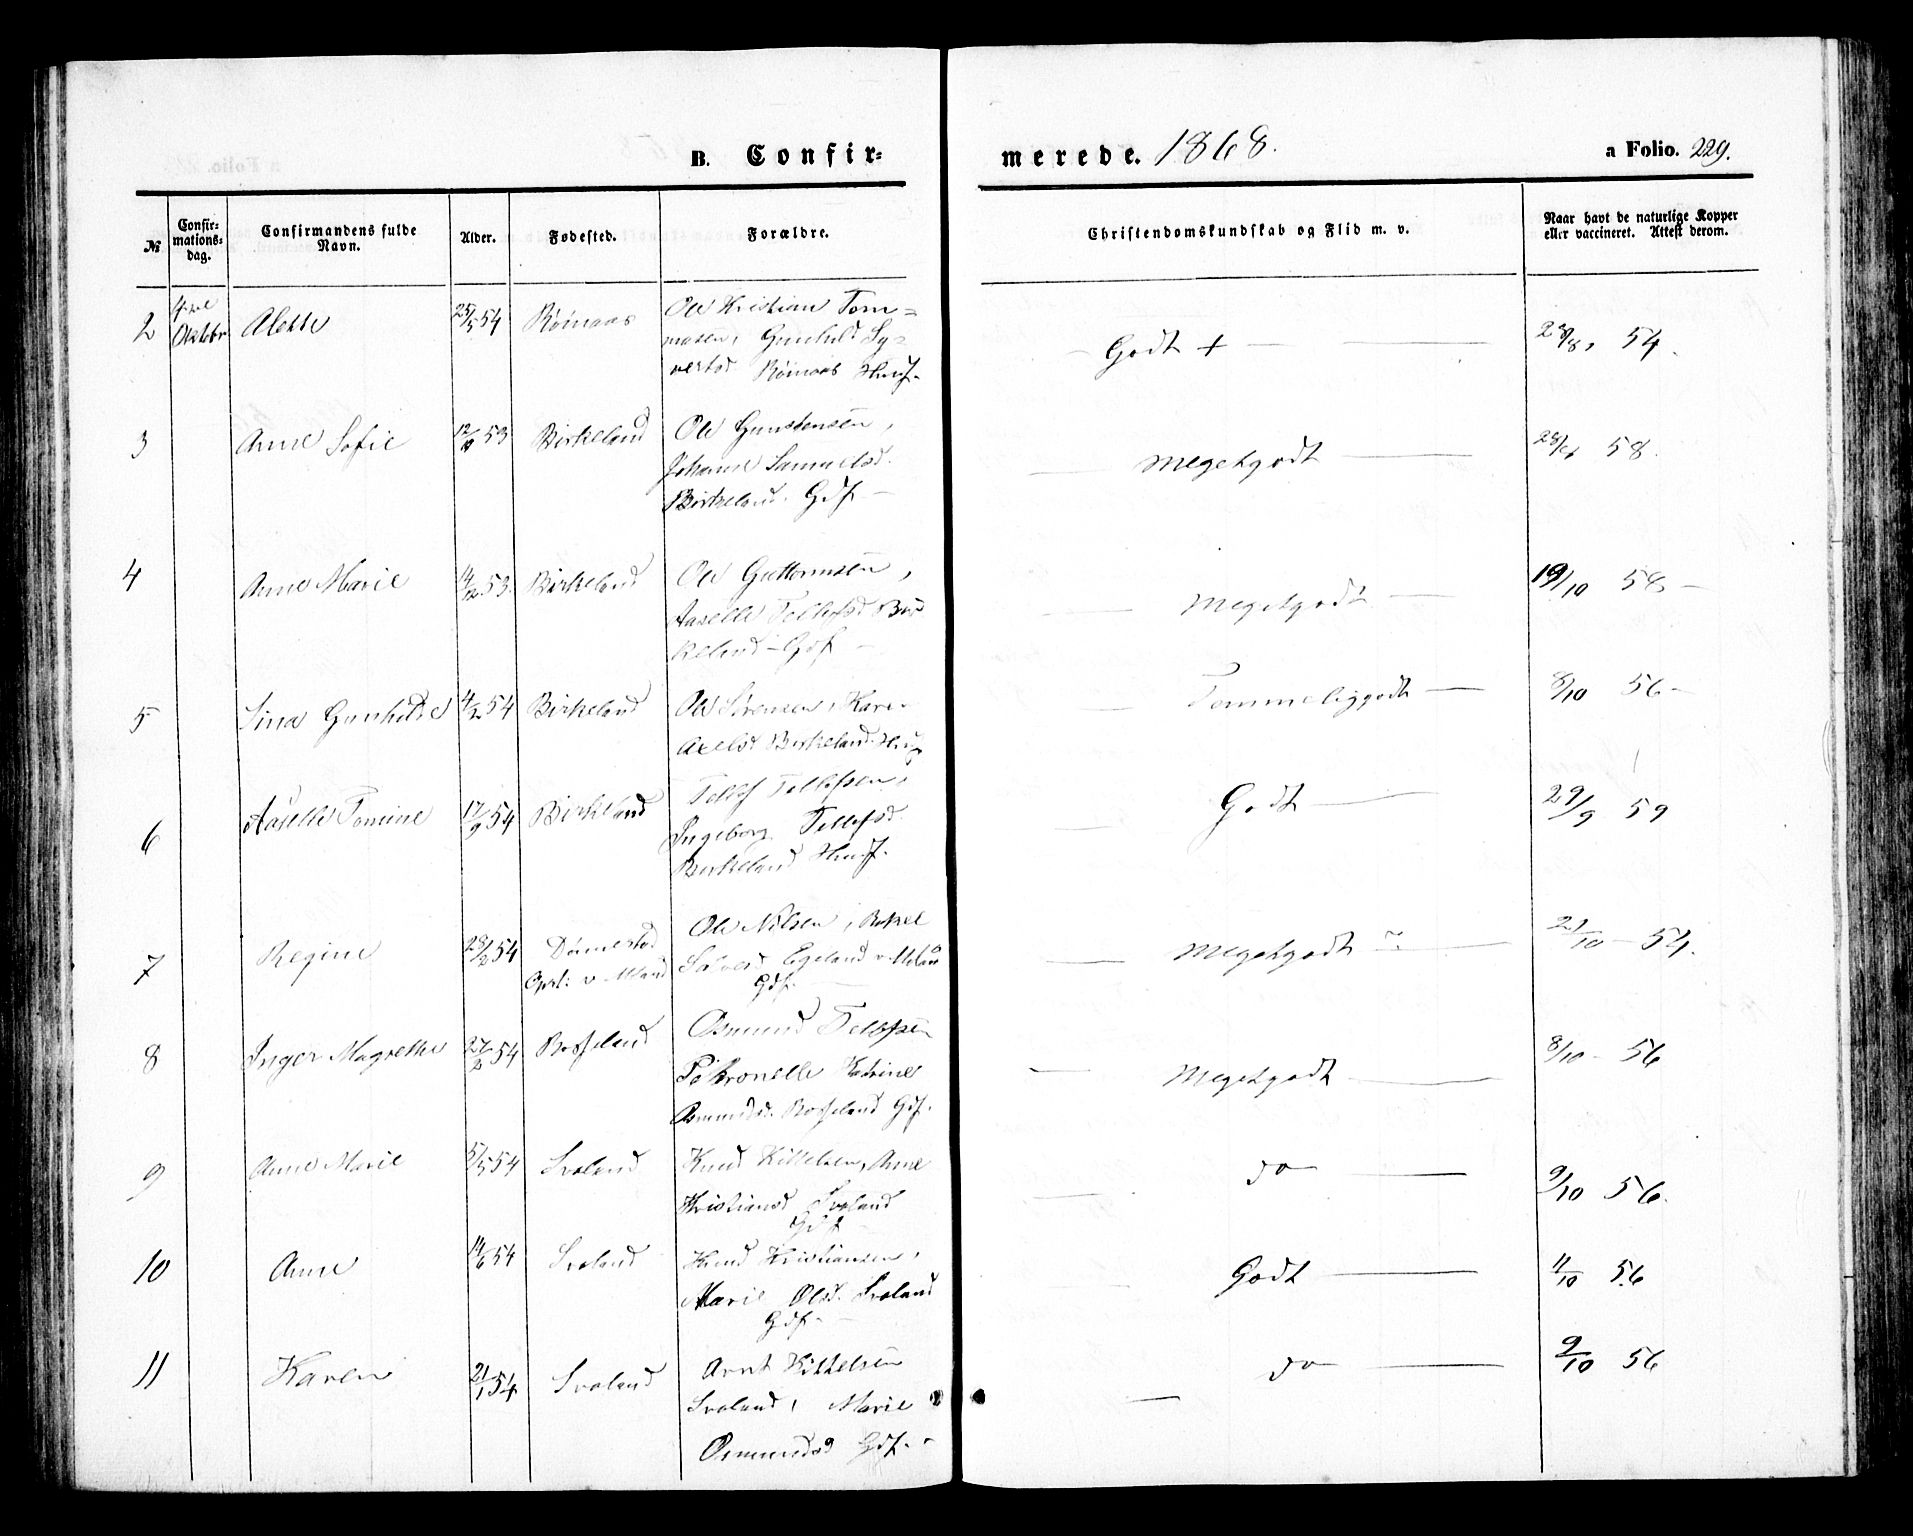 B. Confir-
merede. 1868.
a Folio. 229.
№
Confir-
mations-
dag.
Confirmandens fulde
Navn.
Alder.
Fødested.
Forældre.
Christendomskundskab og Flid m. v.
Naar havt de naturlige Kopper
eller vaccineret. Attest derom.
2
Oktobr
Alette
25/5 54
Røinaas
Ole Kristian Tom=
mesen, Gunhild Sy=
vertsd Røinaas Husf.
Godt +
54.
3
Anne Sofie
53
Birkeland
Ole Gunstensen,
Johanne Samuelsd.
Birkeland. Gdf.
Megetgodt
58.
4
Anne Marie
53.
Birkeland
Ole Guttormsen,
Aaselle Tellefsd Bir
keland - Gdf
Megetgodt
19/10 58
5
Sina Gunhilde
4/2 54
Birkeland
Ole Sørensen, Kari
Axelsd Birkeland. Husf
Tommeliggodt
8/10 56
6
Aaselle Tomine
17/9 54
Birkeland
Tellef Tellefsen,
Ingeborg Tellefsd.
Birkeland Husf.
Godt
29/9 59
7
Regine
28/2 54
Dømestad
Opst: v. Mland
Ole Nilsen, Rakel
Salvesd Egeland
Gdf.
Megetgodt
21/10 54.
8
Inger Magrethe
27/2 54
Rosseland
Osmund Tellefsen
Petronelle Katrine
Osmundsd. Rosseland Gdf.
Megetgodt
8/10 56
9
Anne Marie
5/5 54
Svaland
Knud Kittelsen, Anne
Kristiansd Svaland
Gdf
do
9/10 56.
10
Anne
14/6 54
Svaland
Knud Kristiansen,
Marie Olsd. Svaland
Gdf.
Godt
11/10 56
11
Karen
21/1 54
Svaland
Arnt Kittelsen
Svaland, Marie
Osmundsd Gdf.
do
9/10 56